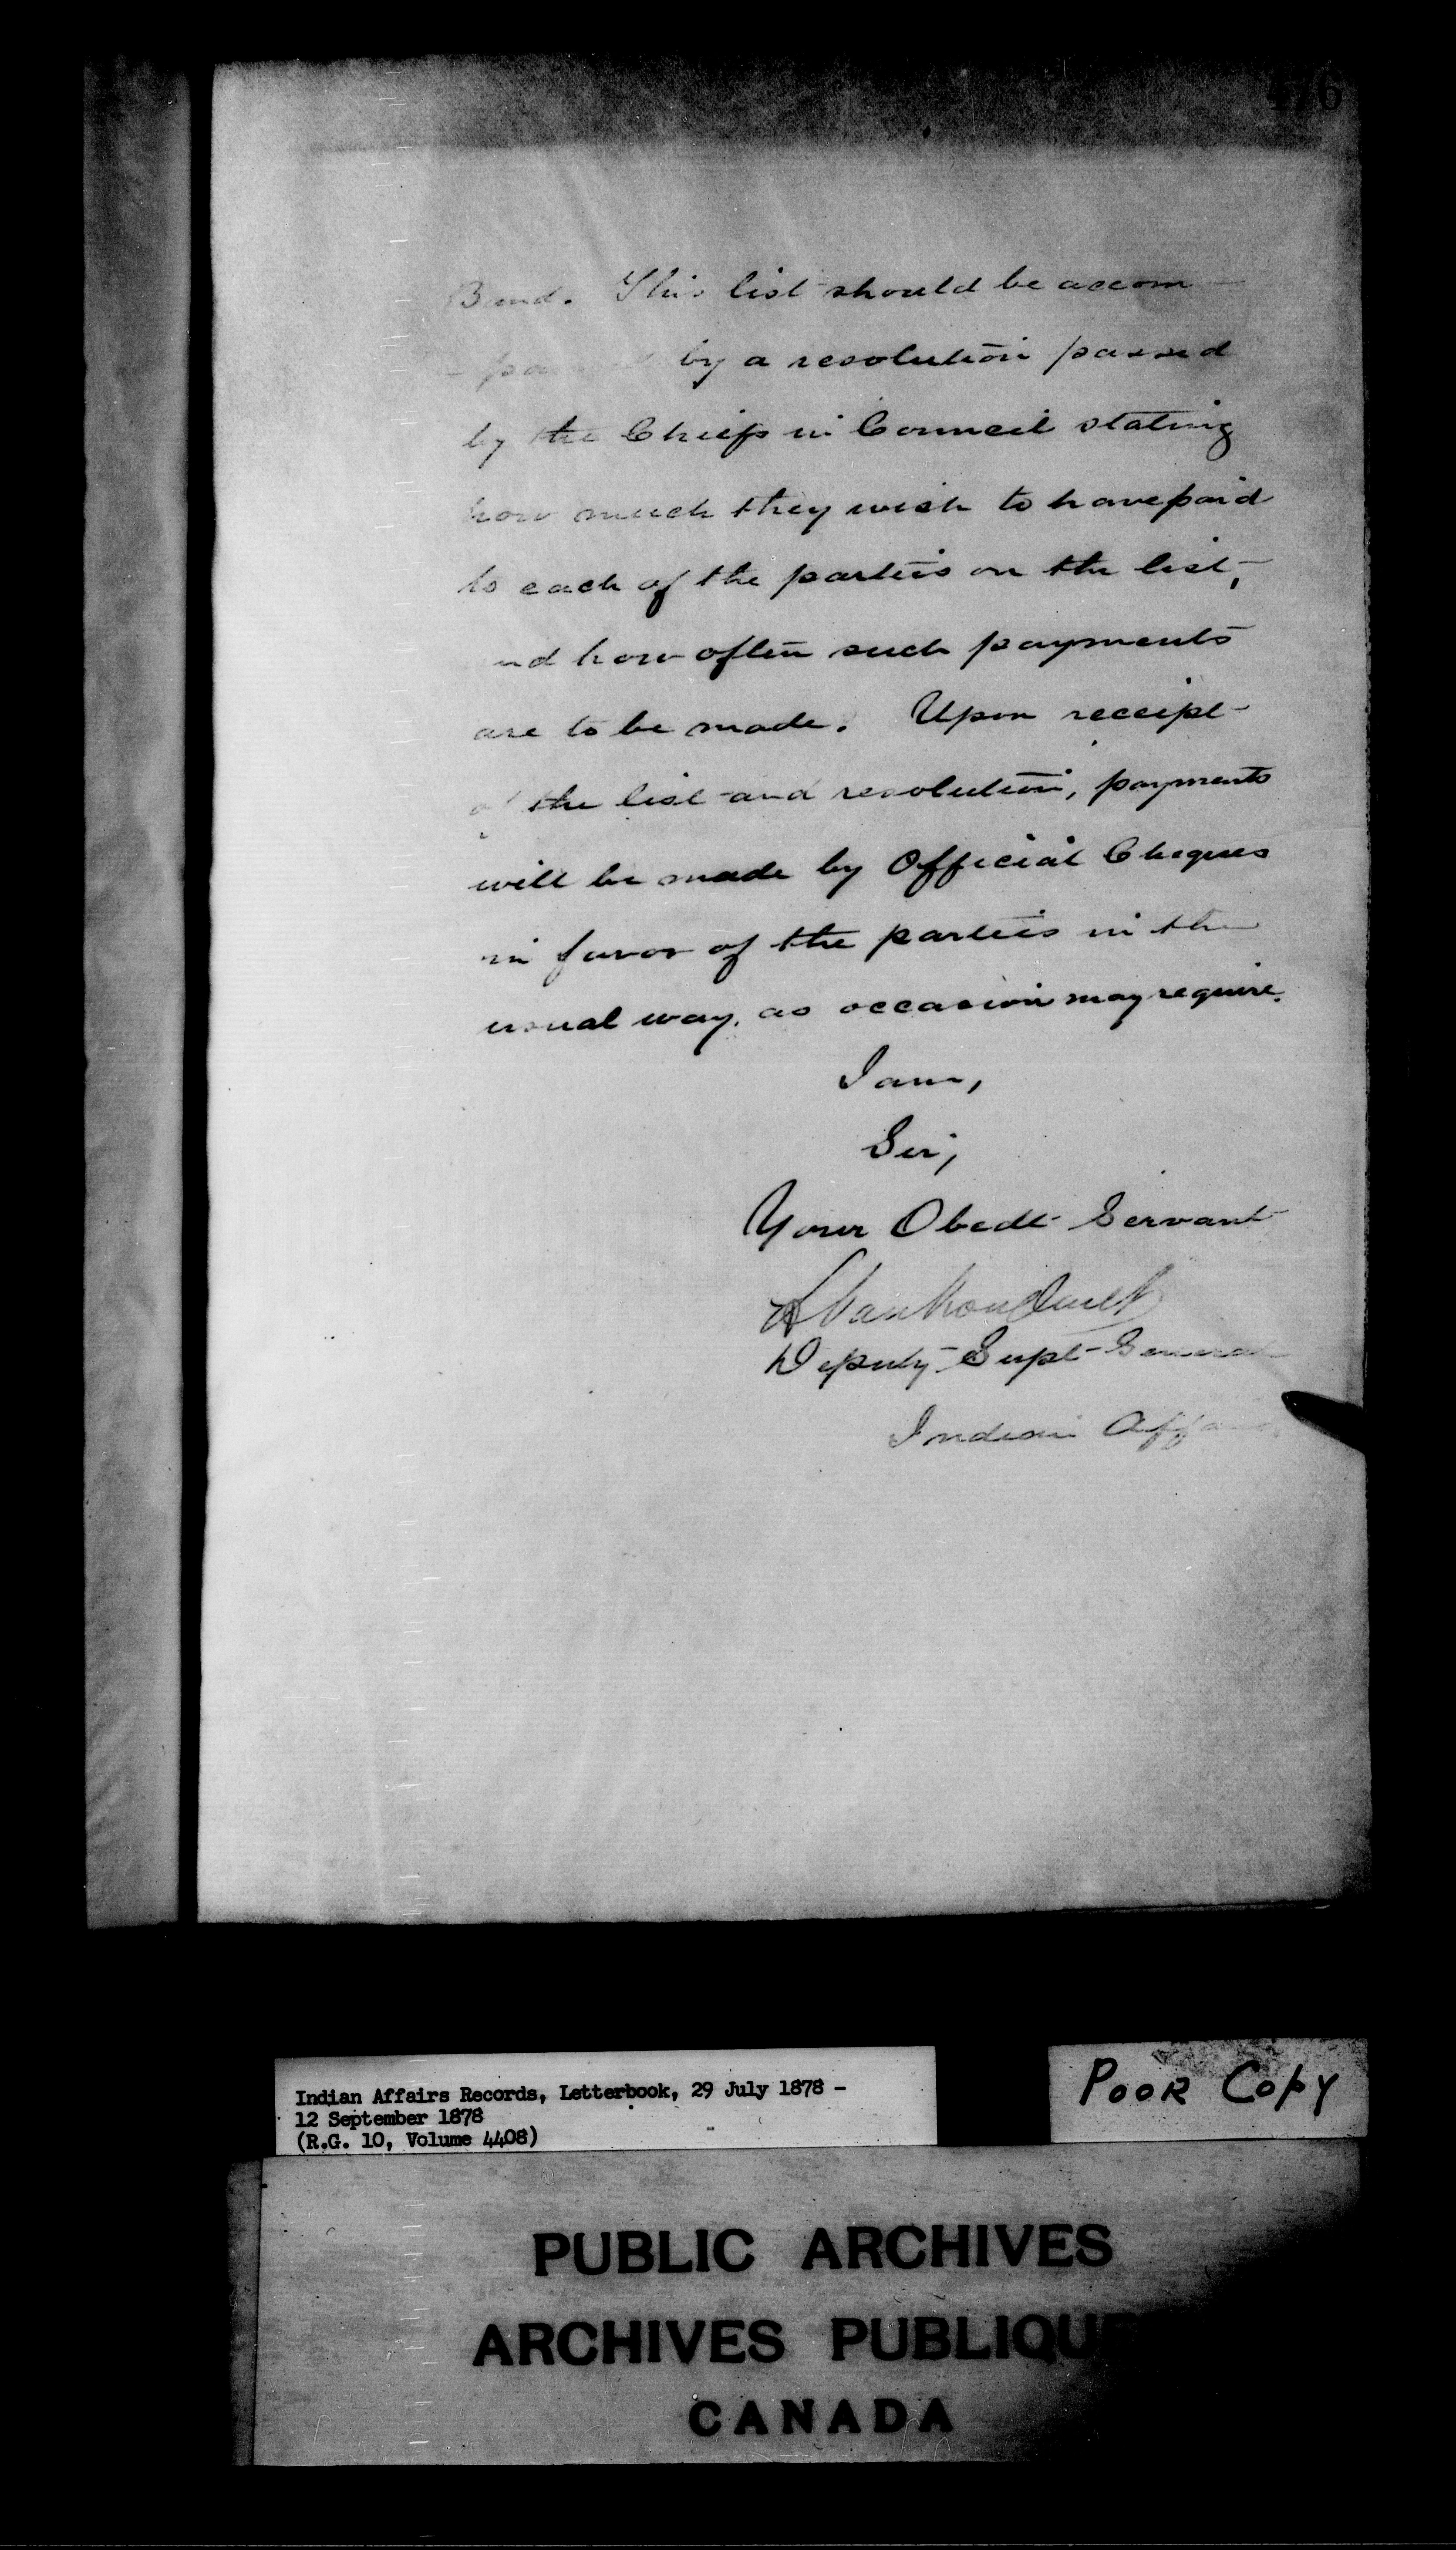 Band. This list should be accom-
by a resolution passed
by the Chiefs in Council stating
how much they wish to have paid
to each of the parties on the list,
and how often such payments
are to be made. Upon receipt
of the list and resolution, payments
will be made by Official Cheques
in favor of the parties in the
usual way, as occasion may require.
I am,
Sir,
Your Obedt Servant
Deputy Supt General
Indian Affairs
Indian Affairs Records, Letterbook, 29 July 1878 -
12 September 1878
(R.G. 10, Volume 4408)
POOR COPY
PUBLIC ARCHIVES
ARCHIVES PUBLIQU
CANADA